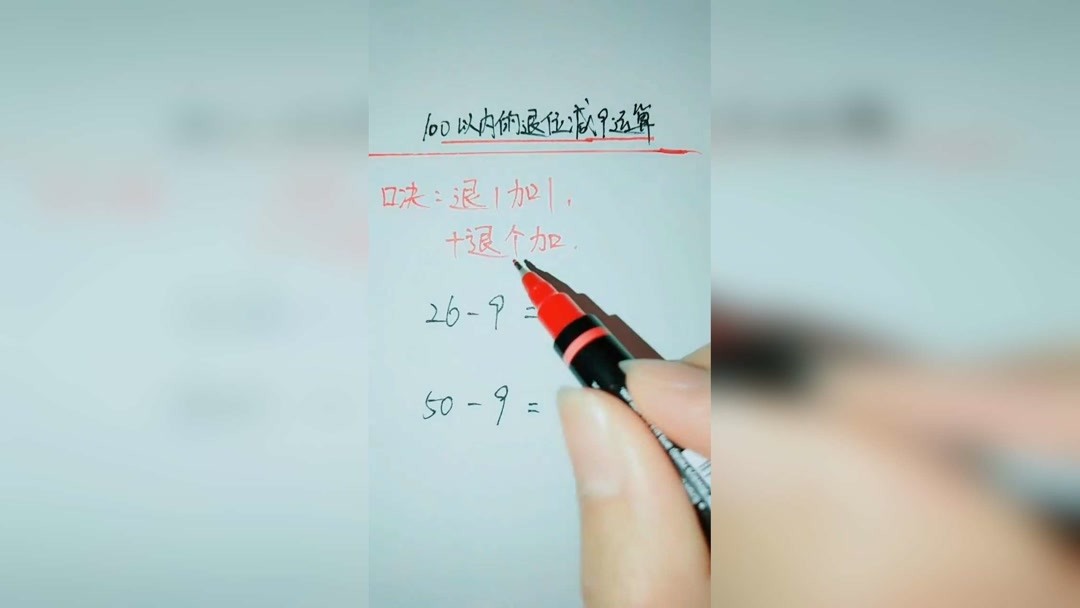 100以内的退位减9运算
口决：退1加1，
十退个加．
26-9=
50-9=